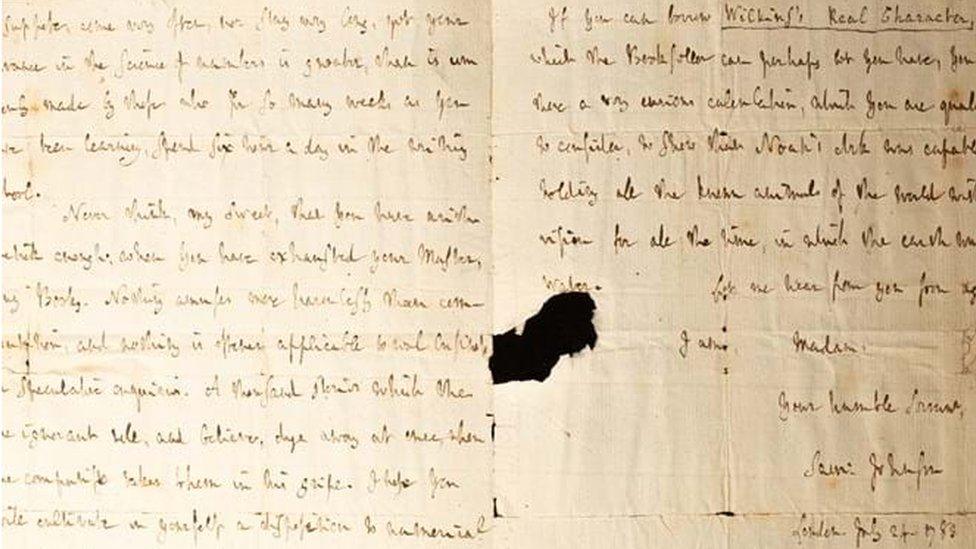 suppose, come very often, nor stay very long, yet your
vance in the science of numbers is greater, than is com
only made by those who for so many weeks as you
ve been learning, spend six hours a day in the writing
hool.
Never think, my sweet, that you have arith
metick enough, when you have exhausted your Master,
buy Books. Nothing amuses more harmlessly than com-
putation, and nothing is oftener applicable to real business
or speculative enquiries. A thousand stories which the
he ignorant tell, and believe, dye away at once, when
he computist takes them in his gripe. I hope you
will cultivate in yourself a disposition to numerical
If you can borrow Wilkins's Real Character,
which the Bookseller can perhaps let you have, you
have a very curious calculation, which you are quali
to consider, to shew that Noah's Ark was capable
holding all the known animals of the world with
vision for all the time, in which the earth was
water. Let me hear from you soon ag
I am, Madam,
Your humble Servant,
Sam: Johnson
London July 24 1783